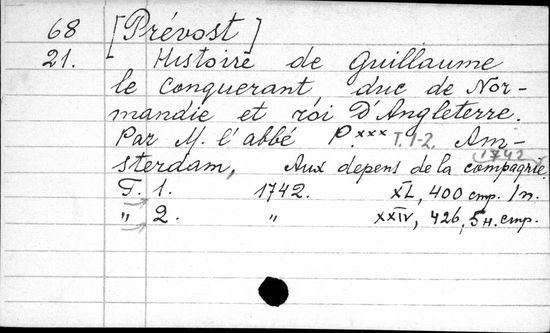 68 [Prévost]
21. Histoire de Guillaume
le Conquerant duc de Nor-
mandie et roi D'Angleterre.
Par M. l'abbé P.xxx T.1-2. Am-
sterdam, Aux depens de la compagnie. 1742
T. 1. 1742. XL, 400 стр. 1 п.
" 2. " XXIV, 426, 5 н. стр.